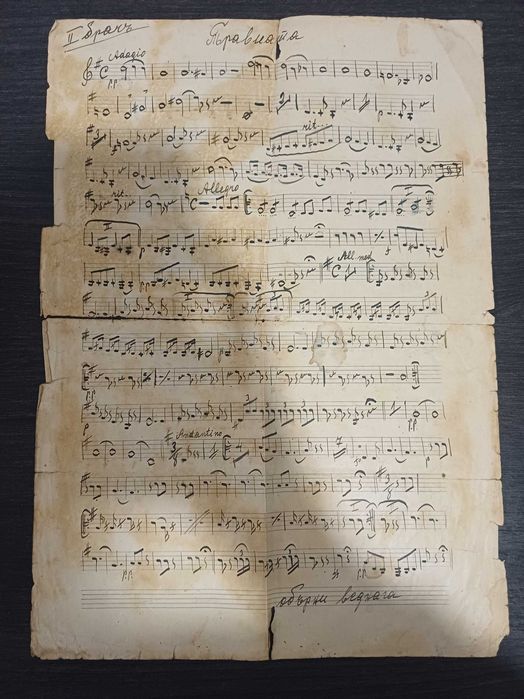 II брачъ
Травиата
Adagio
p.p.
rit...
rit.
Allegro
I
II
p
All. mod.
p.p.
I
p
p.p.
p
3
p.p.
Andantino
p
p.p.
3
p.p.
обърни веднага